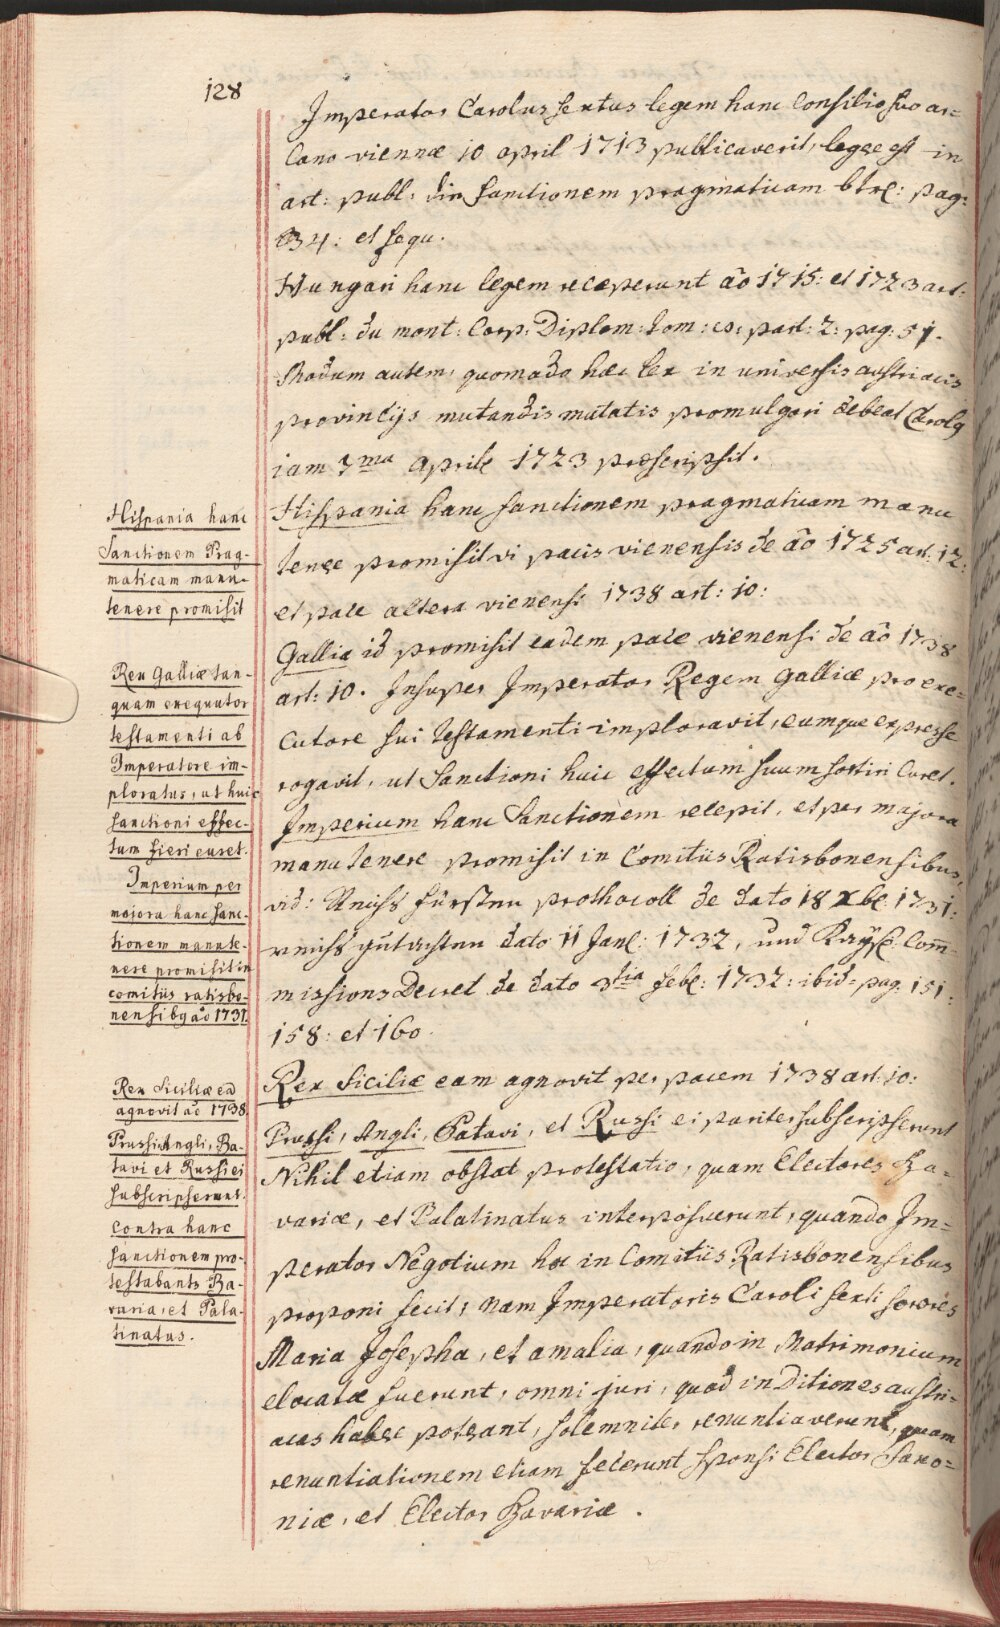 128
Imperator Carolus sextus legem hanc Consilio suo ar=
cano viennæ 10 april 1713 publicaverit, legee est in
art: publ: die Sanctionem pragmaticam btrl: pag:
34: et sequ.
Hungari hanc legem receperunt aō 1715: et 1723 act:
publ: du mont: Corp: Diplom: tom: 8: part: 2: pag: 51.
Modum autem, quomodo hæc lex in universis austriacis
provincijs mutandis mutatis promulgari debeat Carolg
iam 7ma aprile 1723 præscripsit.
Hispania hanc sanctionem pragmaticam manu
tenere promisit vi pacis vienensis de aō 1725 art: 12:
et pace altera vienensi 1738 art: 10:
Gallia id promisit eadem pace vienensi de aō 1738
art: 10. Insuper Imperator Regem Galliæ pro exe=
cutore sui testamenti imploravit, eumque expresse
rogavit, ut Sanctioni huic effectum suum sortiri curet.
Imperium hanc Sanctionem recepit, et per majora
manutenere promisit in Comitiis Ratisbonensibus,
vid: Reichs fürsten prothocoll de dato 18 Xbr: 1731:
reichs gutachten dato 11 Janl: 1732, und Kaÿsl: Com̄=
missions Decret de dato 3tia febr: 1732: ibid: pag. 151:
158: et 160.
Rex Siciliæ eam agnovit per pacem 1738 art: 10:
Prussi, Angli, Batavi, et Russi ei pariter subscripserunt
Nihil etiam obstat protestatio, quam Electores Ba=
variæ, et Palatinatus interposuerunt, quando Im=
perator Negotium hoc in Comitiis Ratisbonensibus
proponi fecit; nam Imperatoris Caroli sexti sorores
Maria Josepha, et amalia, quando in Matrimonium
elocatæ fuerunt, omni juri, quod in Ditiones austri=
acas habere poterant, solemniter renuntiaverunt, quam
renuntiationem etiam fecerunt sponsi Elector Saxo=
niæ, et Elector Bavariæ.
Hispania hanc
Sanctionem Prag-
maticam manu-
tenere promisit
Rex Galliæ tan-
quam exequutor
testamenti ab
Imperatore im-
ploratus, ut huic
sanctioni effec-
tum fieri curet.
Imperium per
majora hanc sanc-
tionem manute-
nere promisit in
comitiis ratisbo-
nensibg aō 1731.
Rex Siciliæ ea
agnovit aō 1738.
Prussi, Angli, Ba-
tavi et Russi ei
subscripserunt.
Contra hanc
sanctionem pro-
testabant Ba-
varia, et Pala-
tinatus.